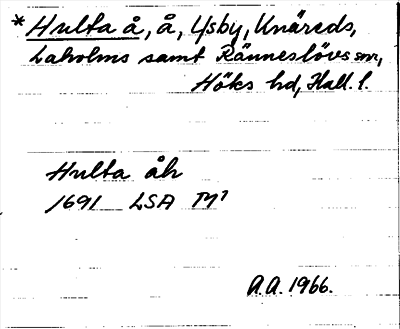 * Hulta å, å, Ysby, Knäreds,
Laholms samt Ränneslövs snr,
Höks hd, Hall. l.
Hulta åh
1691 LSA
A.A. 1966.